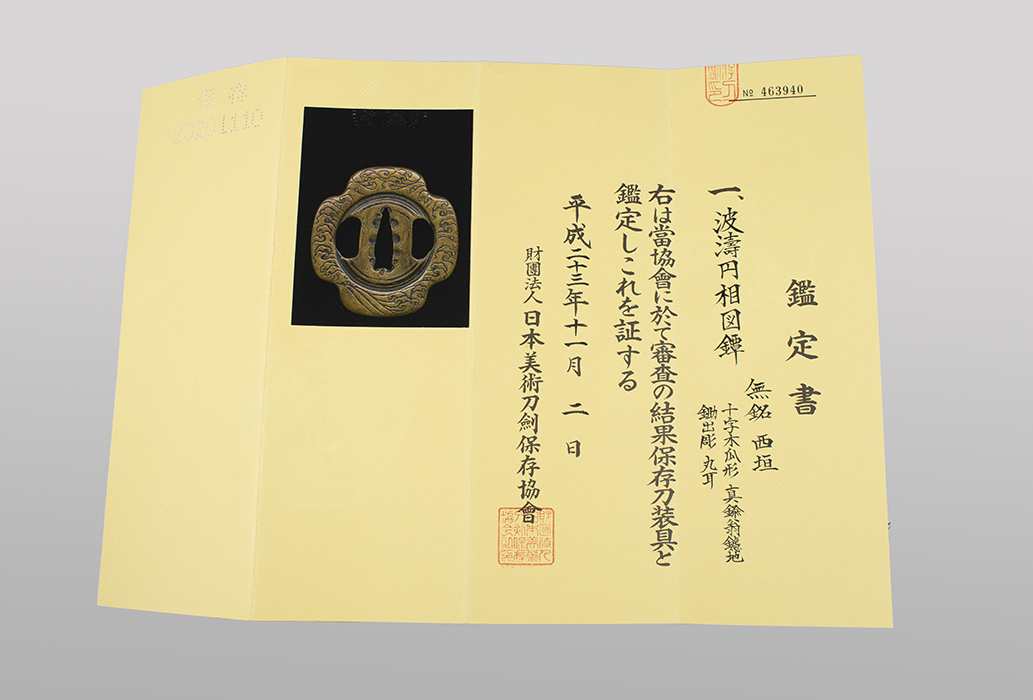 № 463940
鑑定書
一、波濤円相図鐔
無銘 西垣
十字木瓜形 真鍮翁鑢地
鋤出彫 丸耳
右は當協會に於て審査の結果保存刀装具と
鑑定しこれを証する
平成二十三年十一月 二 日
財團法人 日本美術刀劍保存協會